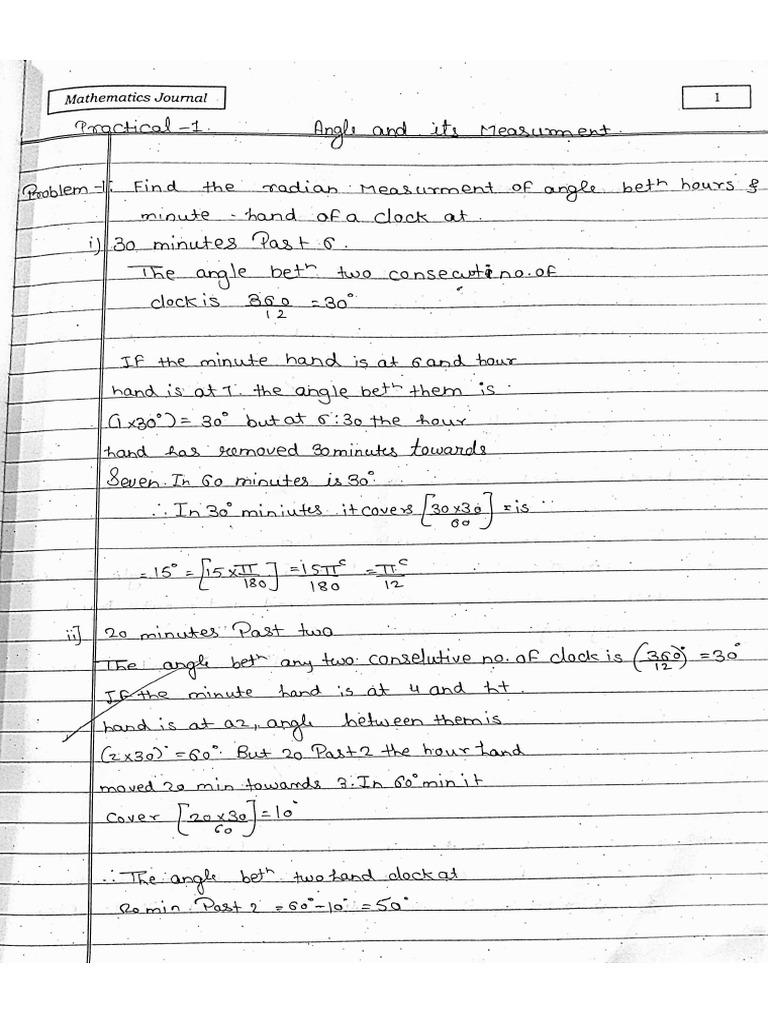 Mathematics Journal
1
Practical-1. Angle and its Measurment.
Problem-1: Find the radian Measurment of angle betn hours &
minute-hand of a clock at.
i) 30 minutes Past 6.
The angle betn two consecutive no. of
clock is 360/12 = 30°
If the minute hand is at 6 and hour
hand is at 7. the angle betn them is
(1x30°) = 30° but at 6:30 the hour
hand has removed 30 minutes towards
Seven. In 60 minutes is 30°.
∴ In 30° miniutes it covers [30x30/60] = is
= 15° = [15 x π/180] = 15π^c/180 = π^c/12
ii] 20 minutes Past two
The angle betn any two conselutive no. of clock is (360/12)° = 30°
If the minute hand is at 4 and ht.
hand is at a2, angle between them is
(2x30)° = 60°. But 20 Past 2 the hour hand
moved 20 min towards 3. In 60° min it
cover [20x30/60] = 10°
∴ The angle betn two hand clock at
20 min. Past 2 = 60° - 10° = 50°